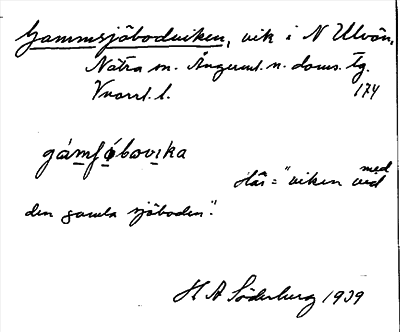 Gammsjöbodviken, vik i N Ulvön,
Nätra sn. Ångerml. n. doms. tg.
Vnorrl. l. 174
gámfǿbovıka
med
Här = "viken ved
den gamla sjöboden".
H A Söderberg 1939